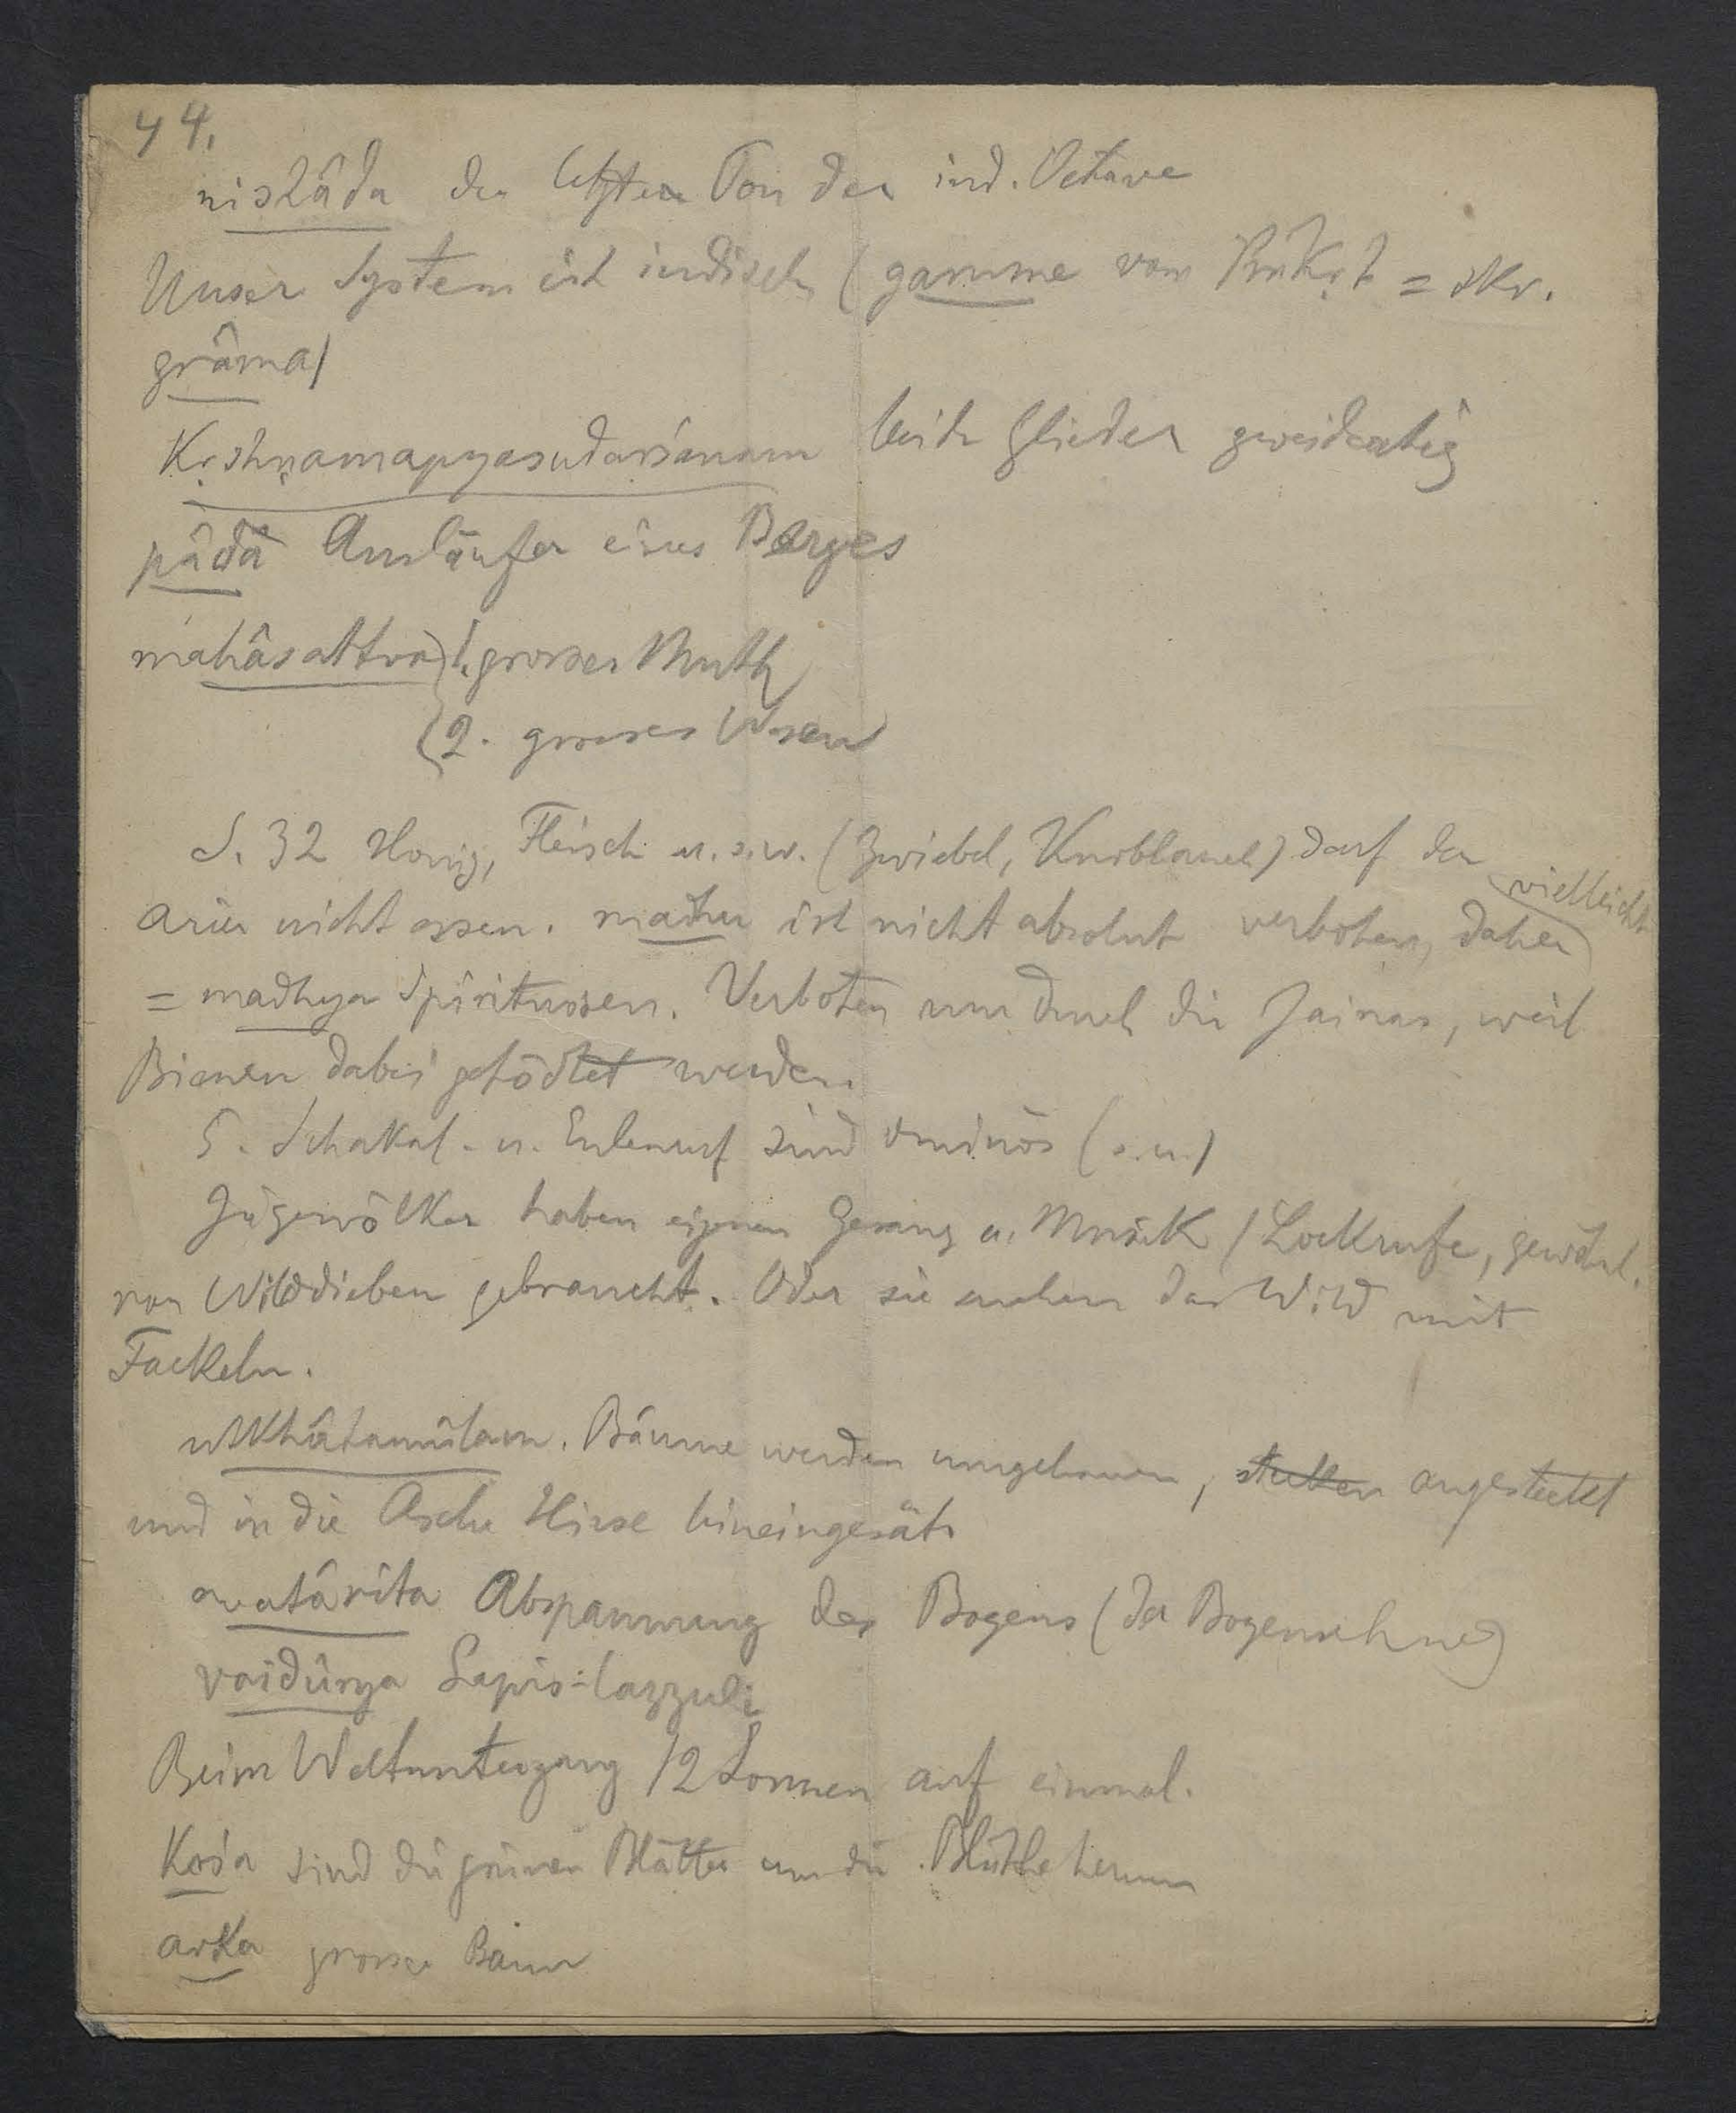 44.
nishâda der letzte Ton der ind. Octave
Unser System ist indisch (gamme vom Prâkṛt = skr.
grâma)
Kṛshṇamapyasudarśanam beide Glieder zweideutig
pâda Ausläufer eines Berges
mahâsattva 1. grosser Muth
2. grosses Wesen
S. 32 Honig, Fleisch u.s.w. (Zwiebel, Knoblauch) darf der
vielleicht
Arier nicht essen. madhu ist nicht absolut verboten, daher
= madhya Spirituosen. Verboten nur durch die Jainas, weil
Bienen dabei getödtet werden.
5. Schakal- u. Eulenruf sind ominös (s.u.)
Jägervölker haben eigenen Gesang u. Musik / Lockrufe, gewöhnl.
von Wilddieben gebraucht. Oder sie suchen das Wild mit
Fackeln.
utkhâtamûlam. Bäume werden umgehauen, angesteckt
und in die Asche Hirse hineingesät.
avatârita Abspannung des Bogens (der Bogensehne)
vaidûrya Lapis-lazzuli
Beim Weltuntergang 12 Sonnen auf einmal.
Kośa sind die grünen Blätter um die Blüthe herum
arka grosser Baum